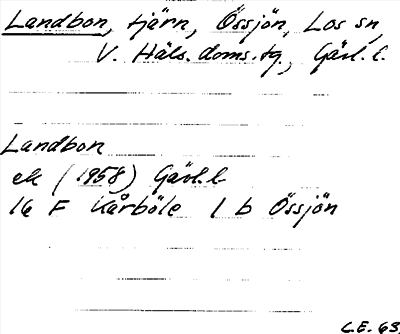 Landbon, tjärn, Össjön, Los sn,
V. Häls. doms.tg., Gävl. l.
Landbon
ek (1958) Gävl. l
16 F Kårböle 1 b Össjön
C.E. 63.